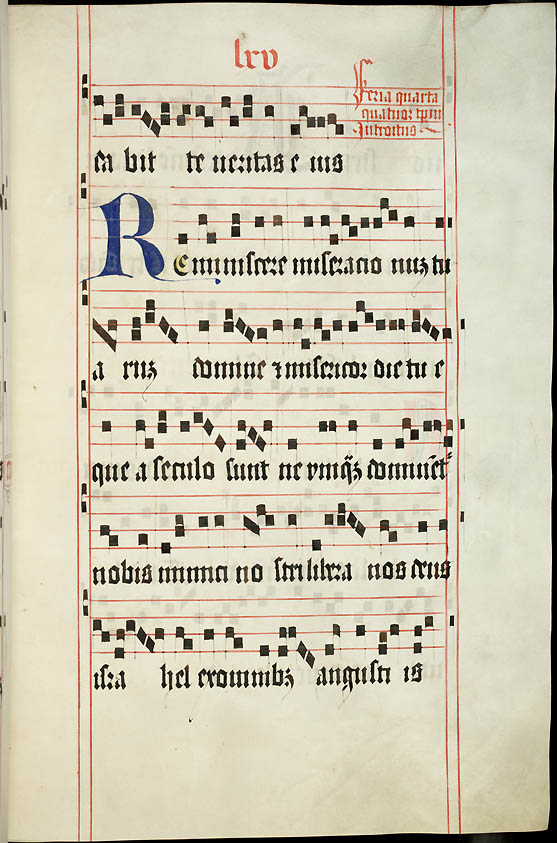 lxv
Feria quarta
quatuor tpm
Introitus
da bit te veritas e ius
Reminiscere miseracio nuʒ tu
a ruʒ domine ⁊ misericor die tu e
que a seculo sunt ne vmqʒ dominēt᷑
nobis inimici no stri libera nos deus
isra hel ex omnibʒ angusti is